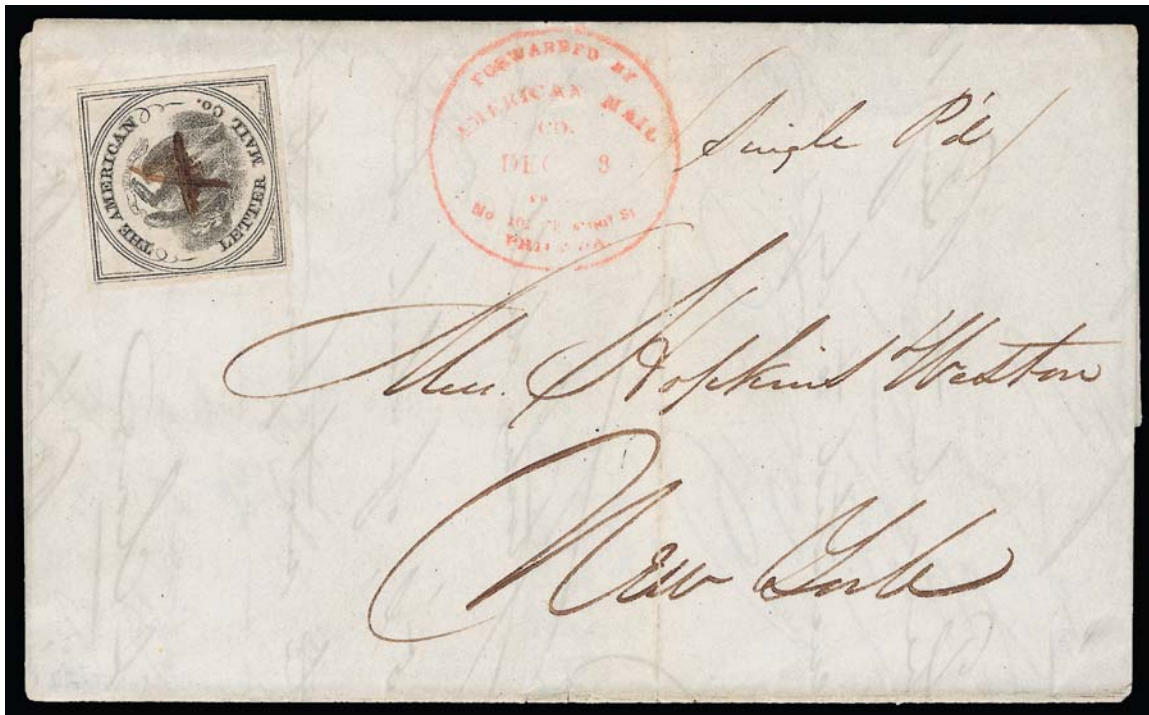 THE AMERICAN
LETTER MAIL CO.
FORWAREFD BY
AMERICAN MAIL
CO.
DEC 8
No 101 St
PHILADA
Single P'd
Hopkins Weston
New York